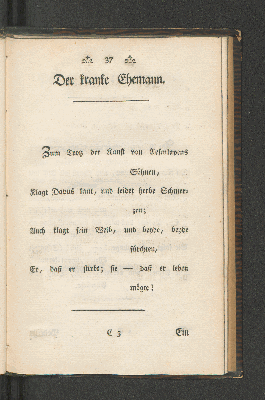 37
Der kranke Ehemann.
Zum Trotz der Kunst von Aeskulapens
Söhnen,
Klagt Davus laut, und leidet herbe Schmer-
zen;
Auch klagt sein Weib, und beyde, beyde
fürchten,
Er, daß er sterbe; sie — daß er leben
mögte!
C 3 Ein